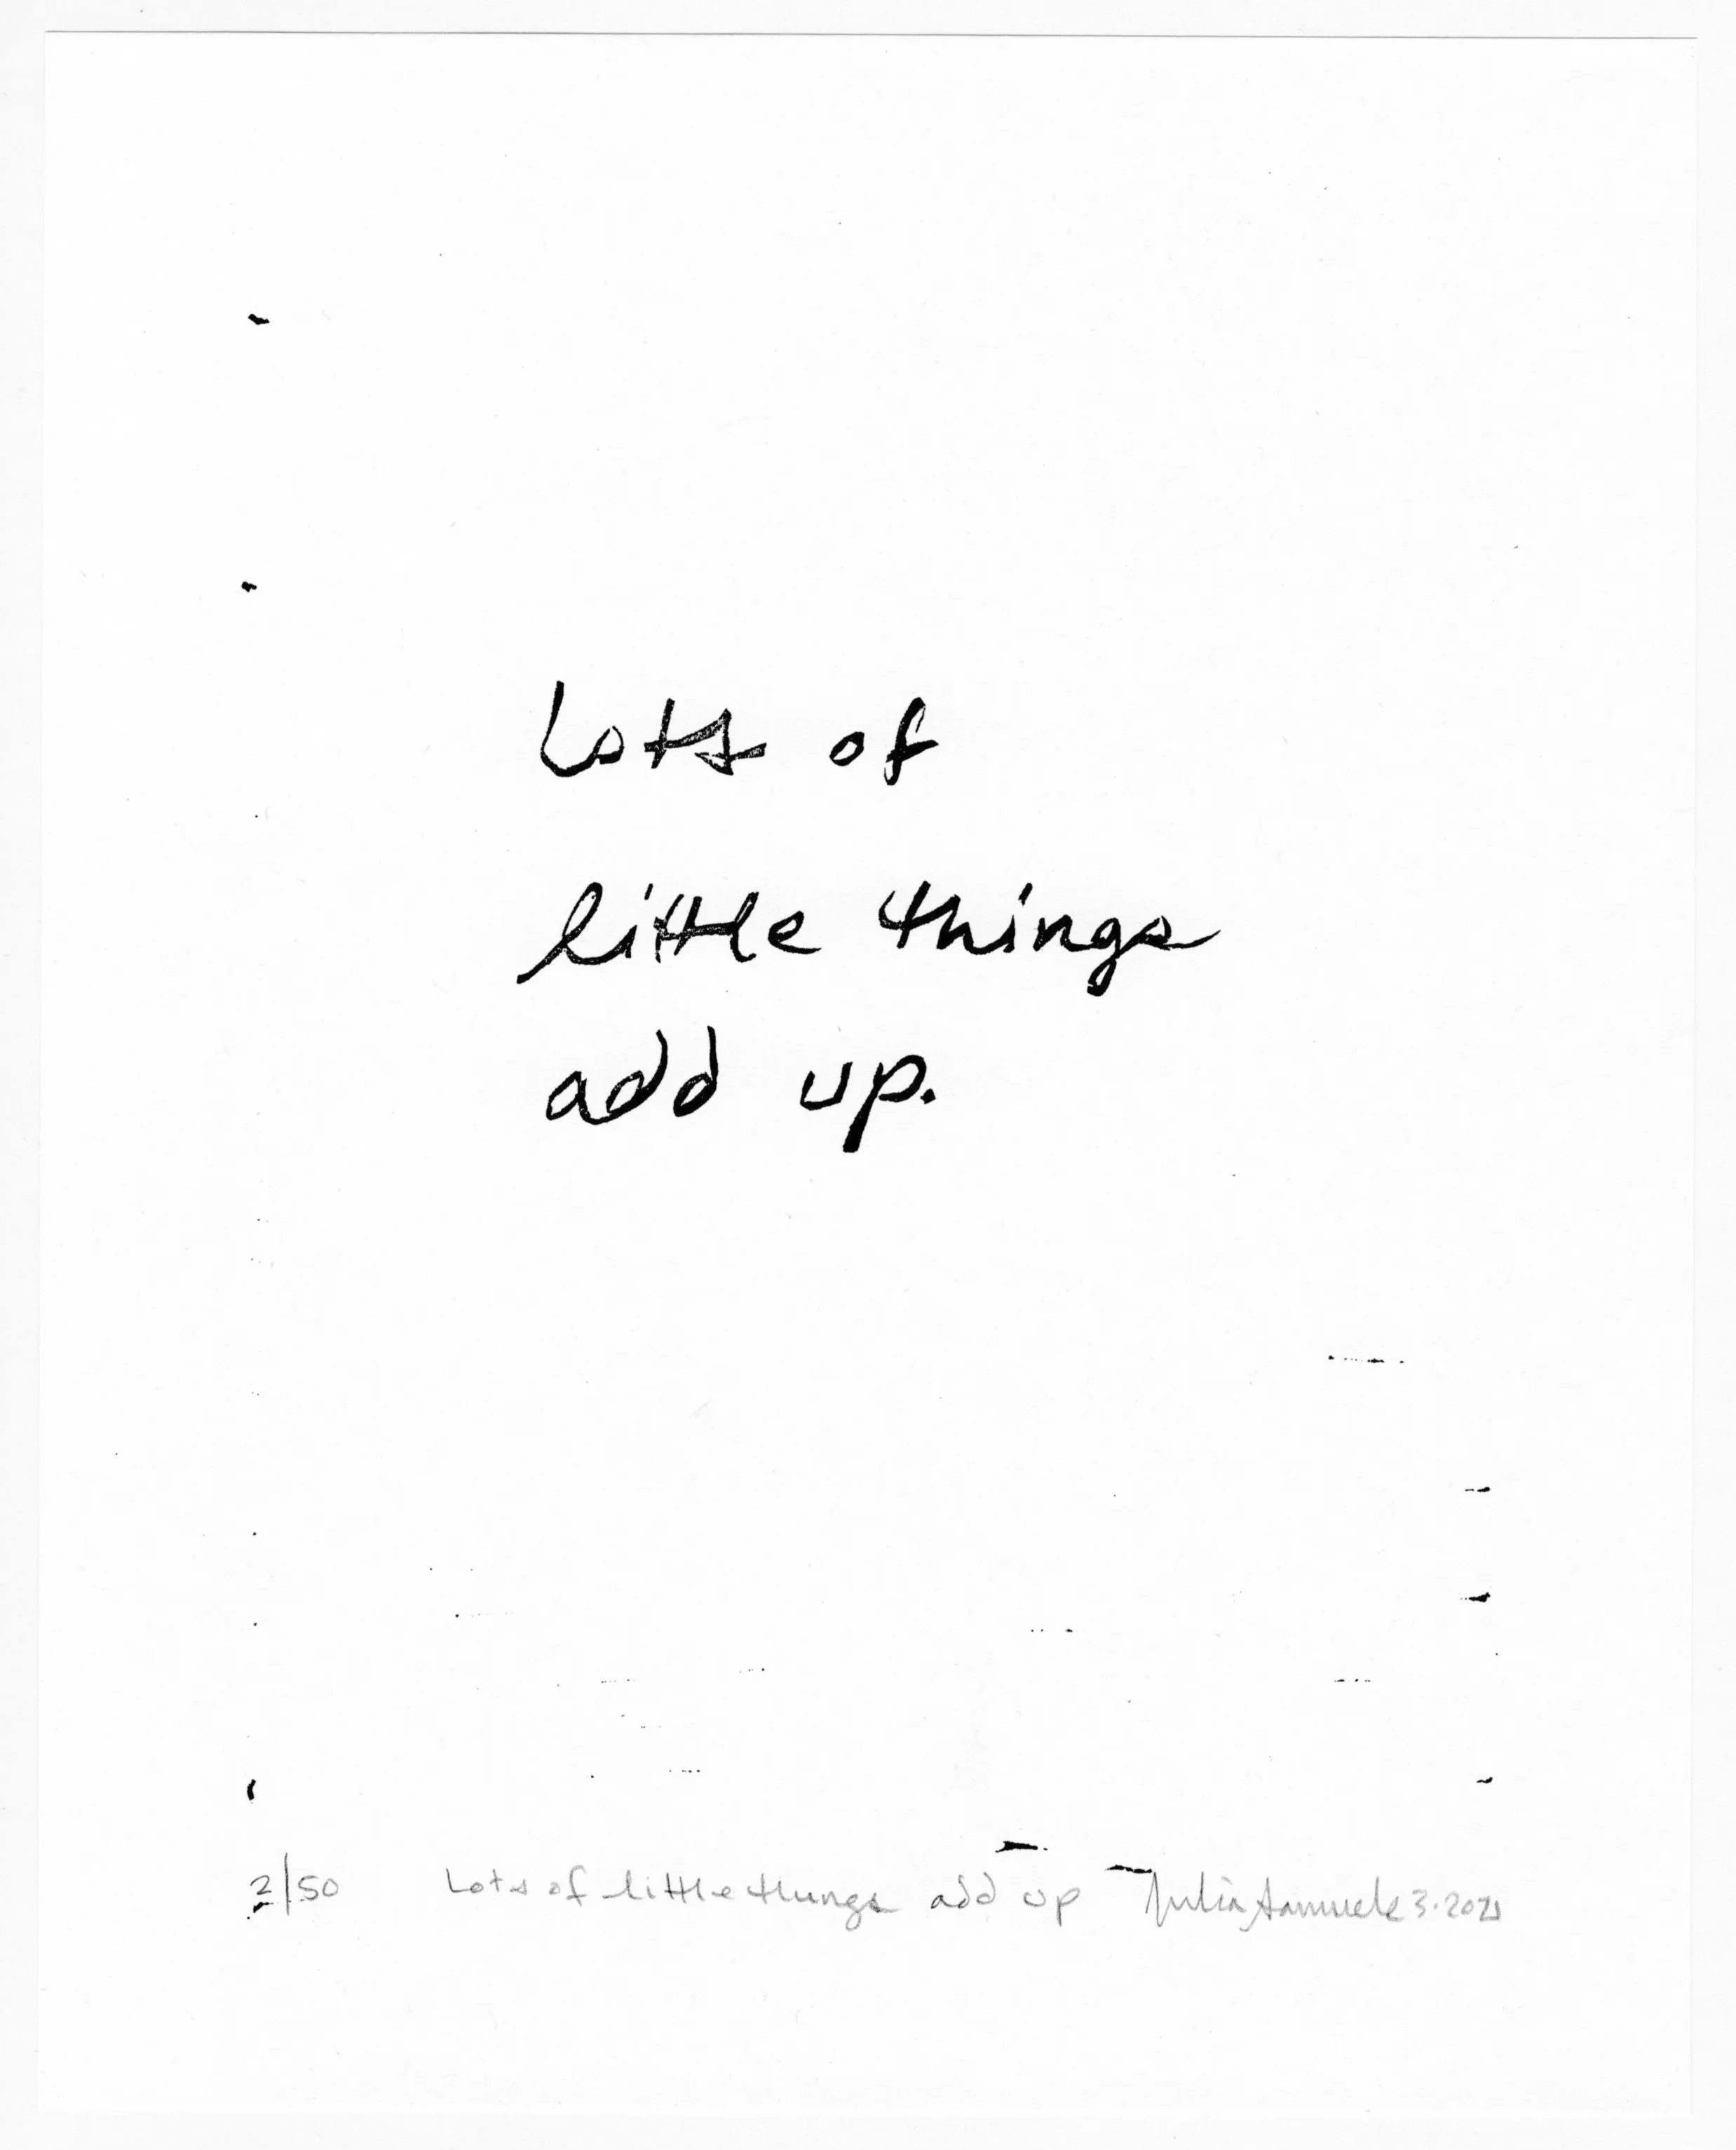 Lots of
little things
add up.
2/50 Lots of little things add up Julia Samuels 3.2021